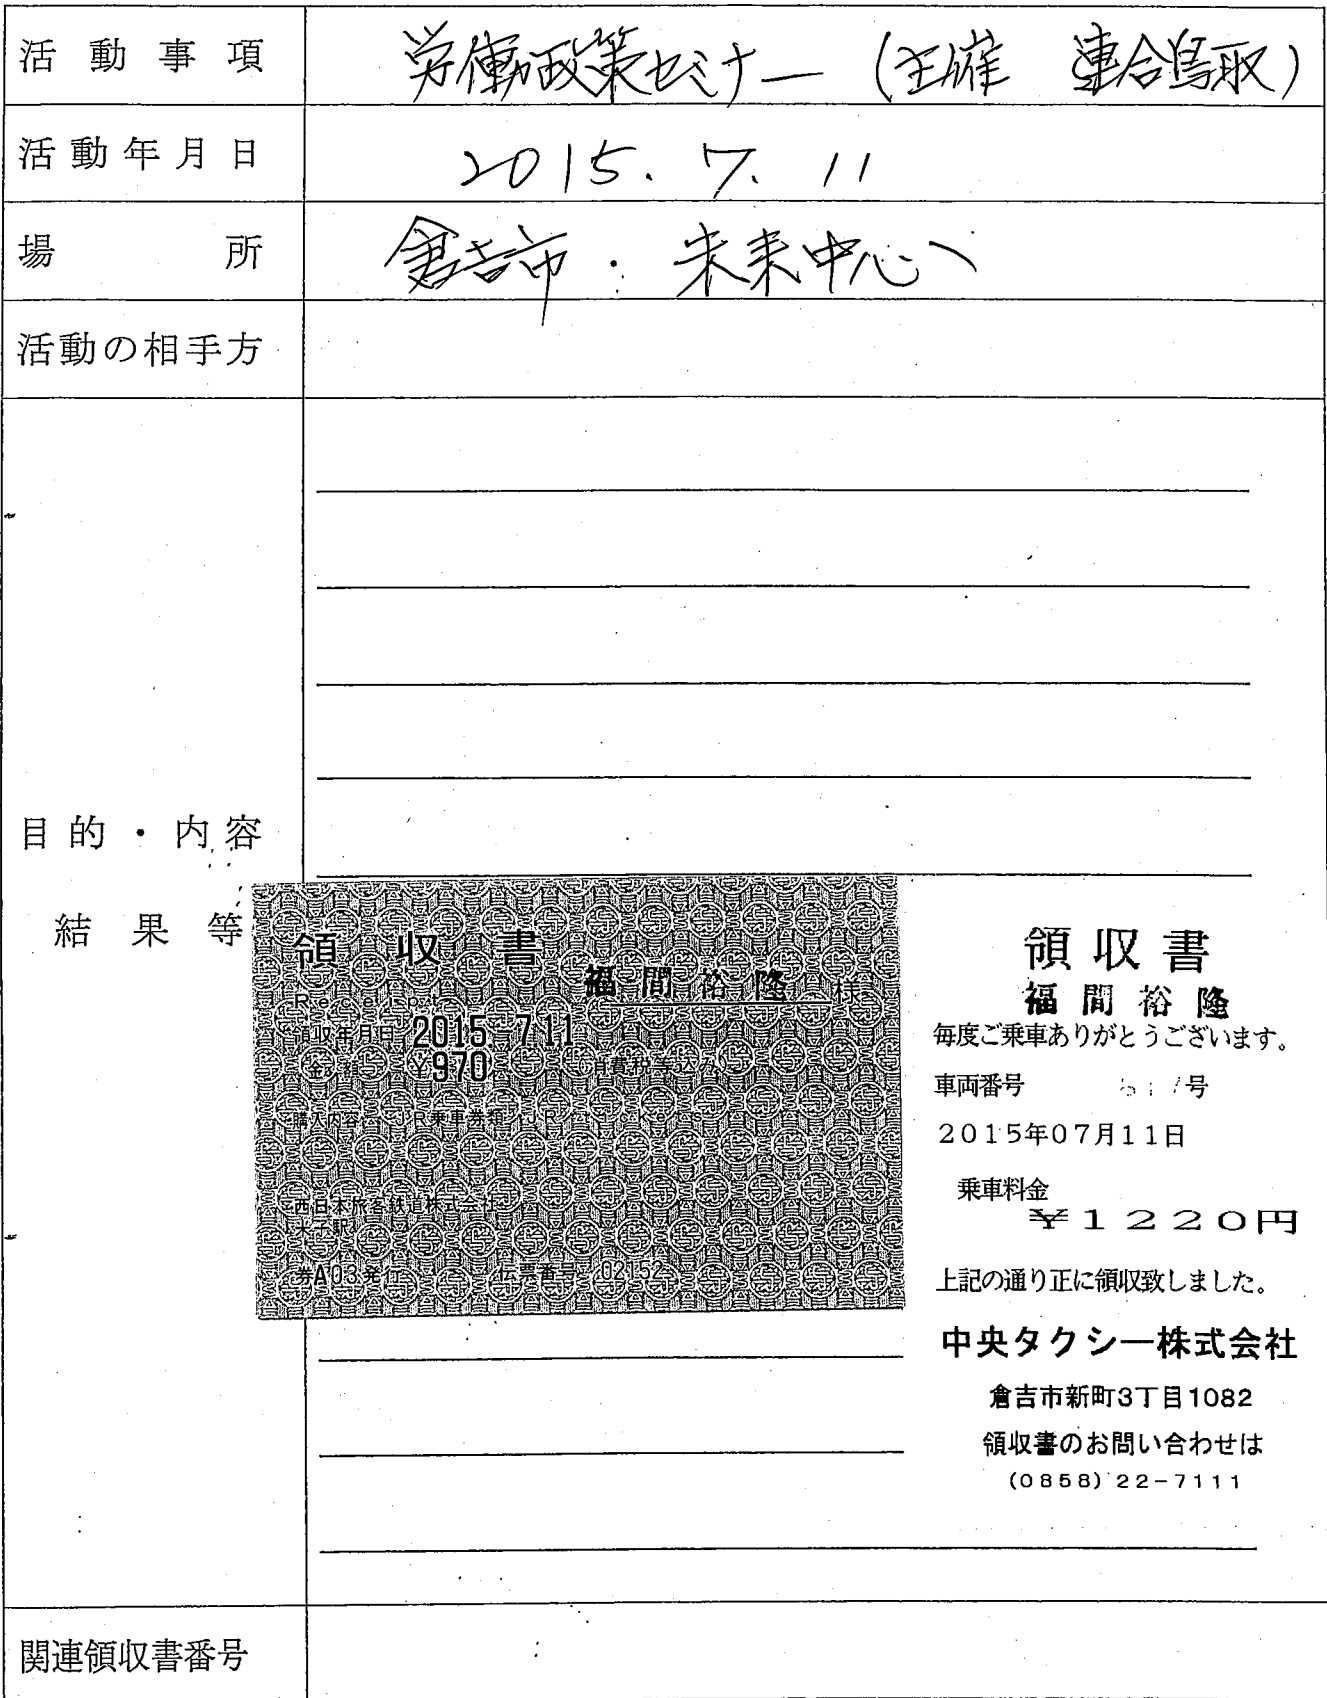 活動事項 労働政策セミナー (主催 連合鳥取)
活動年月日 2015. 7. 11
場所 倉吉市・未来中心へ
活動の相手方
目的・内容
結果等
領収書
Receipt
福間裕隆 様
領収年月日 2015. 7.11
金額 ¥970 消費税等込み
購入内容 JR乗車券類 JR ticket
西日本旅客鉄道株式会社
米子駅
券A03発行 伝票番号 02152
領収書
福間裕隆
毎度ご乗車ありがとうございます。
車両番号 号
2015年07月11日
乗車料金
¥1220円
上記の通り正に領収致しました。
中央タクシー株式会社
倉吉市新町3丁目1082
領収書のお問い合わせは
(0858)22-7111
関連領収書番号